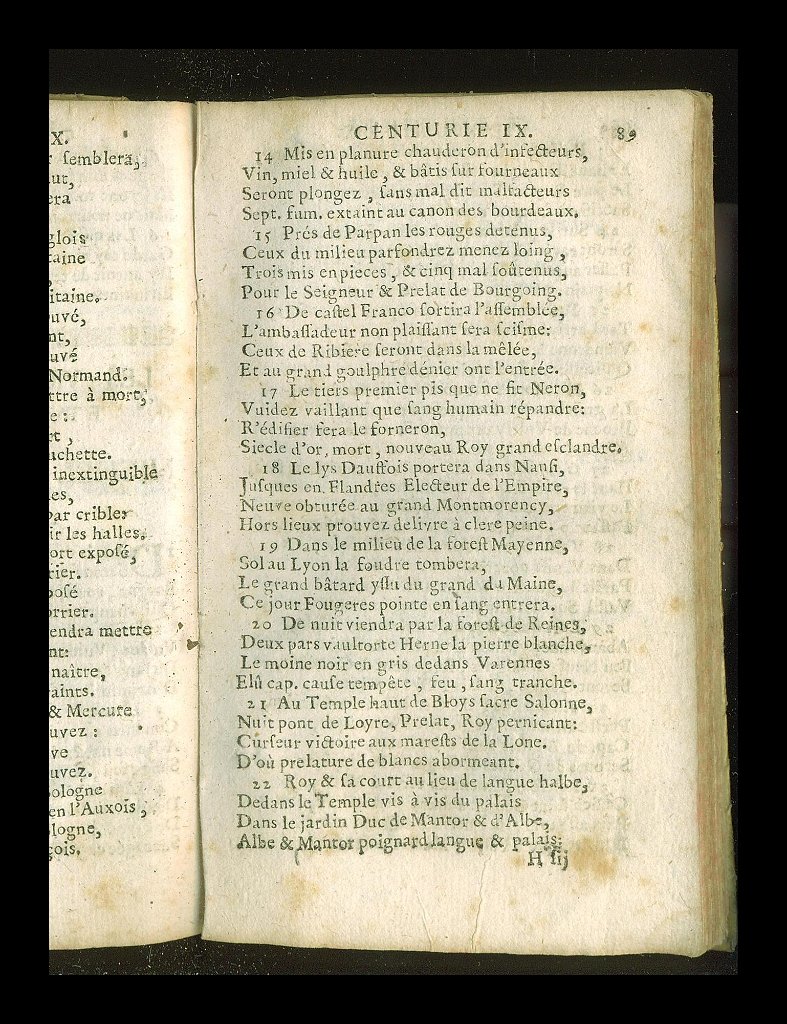 X.
semblera,
ut,
era
glois
taine
itaine.
uvé,
nt,
uvé
Normand.
ttre à mort,
e :
et ,
uchette.
inextinguible
es,
par cribler
ir les halles,
ort exposé,
rier.
posé
orrier.
endra mettre
nt:
naître,
aints.
& Mercure
uvez :
ve
uvez.
ologne
en l'Auxois ,
logne,
çois.
CENTURIE IX. 89
14 Mis en planure chauderon d'infecteurs,
Vin, miel & huile , & bâtis ſur fourneaux
Seront plongez , ſans mal dit malfacteurs
Sept. fum. extaint au canon des bourdeaux.
15 Prés de Parpan les rouges detenus,
Ceux du milieu parfondrez menez loing ,
Trois mis en pieces , & cinq mal ſoûtenus,
Pour le Seigneur & Prelat de Bourgoing.
16 De caſtel Franco ſortira l'aſſemblée,
L'ambaſſadeur non plaiſſant ſera ſciſme:
Ceux de Ribiere ſeront dans la mêlée,
Et au grand goulphre dénier ont l'entrée.
17 Le tiers premier pis que ne fit Neron,
Vuidez vaillant que ſang humain répandre:
R'édifier fera le forneron,
Siecle d'or, mort , nouveau Roy grand eſclandre.
18 Le lys Dauffois portera dans Nanſi,
Juſques en Flandres Electeur de l'Empire,
Neuve obturée au grand Montmorency,
Hors lieux prouvez delivre à clere peine.
19 Dans le milieu de la foreſt Mayenne,
Sol au Lyon la foudre tombera,
Le grand bâtard yſſu du grand du Maine,
Ce jour Fougeres pointe en ſang entrera.
20 De nuit viendra par la foreſt de Reines,
Deux pars vaultorte Herne la pierre blanche,
Le moine noir en gris dedans Varennes
Elû cap. cauſe tempête , feu , ſang tranche.
21 Au Temple haut de Bloys ſacre Salonne,
Nuit pont de Loyre, Prelat, Roy pernicant:
Curſeur victoire aux mareſts de la Lone.
D'où prelature de blancs abormeant.
22 Roy & ſa court au lieu de langue halbe,
Dedans le Temple vis à vis du palais
Dans le jardin Duc de Mantor & d'Albe,
Albe & Mantor poignard langue & palais;
H iij